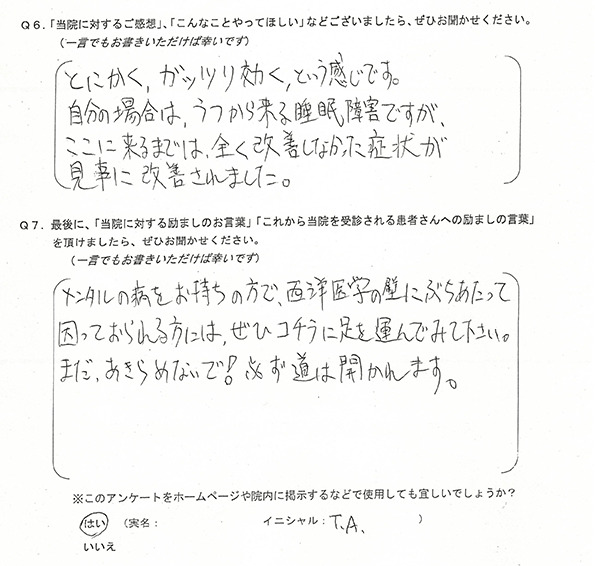 Q6.「当院に対するご感想」、「こんなことやってほしい」などございましたら、ぜひお聞かせください。
(一言でもお書きいただけば幸いです)
とにかく, ガッツリ効く, という感じです。
自分の場合は, うつから来る睡眠障害ですが、
ここに来るまでは, 全く改善しなかった症状が
見事に改善されました。
Q7. 最後に、「当院に対する励ましのお言葉」「これから当院を受診される患者さんへの励ましの言葉」
を頂けましたら、ぜひお聞かせください。
(一言でもお書きいただけば幸いです)
メンタルの病をお持ちの方で、西洋医学の壁にぶちあたって
困っておられる方には, ぜひコチラに足を運んでみて下さい。
まだ、あきらめないで!必ず道は開かれます。
※このアンケートをホームページや院内に掲示するなどで使用しても宜しいでしょうか?
はい (実名: イニシャル: T.A. )
いいえ